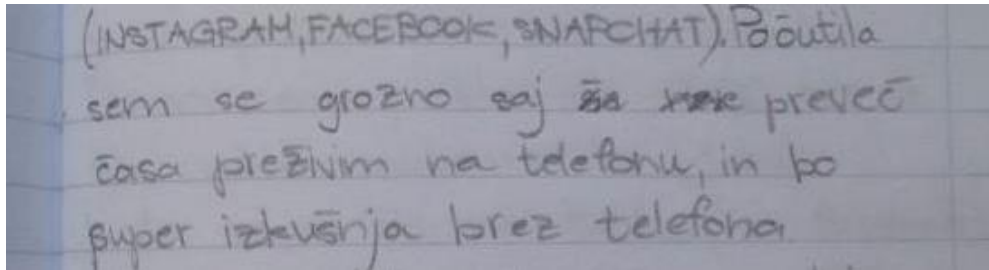 (INSTAGRAM, FACEBOOK, SNAPCHAT). Počutila
sem se grozno saj preveč
časa preživim na telefonu, in bo
super izkušnja brez telefona